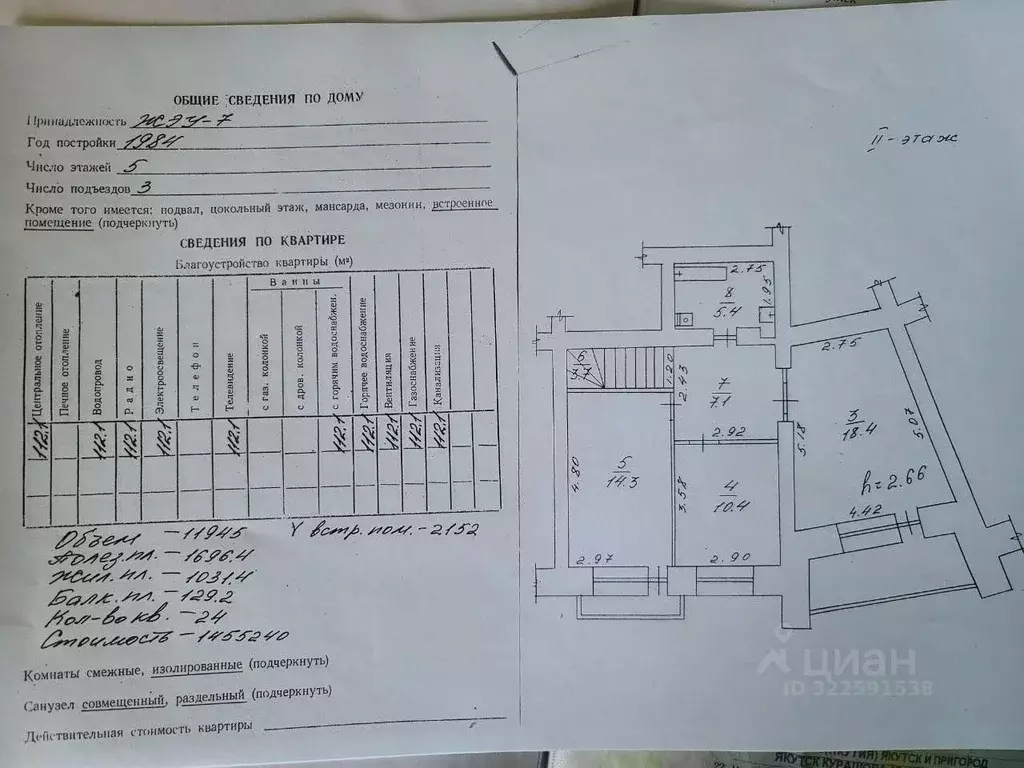 ОБЩИЕ СВЕДЕНИЯ ПО ДОМУ
Принадлежность ЖЭУ-7
Год постройки 1984
Число этажей 5
Число подъездов 3
Кроме того имеется: подвал, цокольный этаж, мансарда, мезонин, встроенное
помещение (подчеркнуть)
СВЕДЕНИЯ ПО КВАРТИРЕ
Благоустройство квартиры (м²)
Ванны
Центральное отопление
Печное отопление
Водопровод
Радио
Электроосвещение
Телефон
Телевидение
с газ. колонкой
с дров. колонкой
с горячим водоснабжен.
Горячее водоснабжение
Вентиляция
Газоснабжение
Канализация
112.1 112.1 112.1 112.1 112.1 112.1 112.1 112.1 112.1 112.1
Объем - 11945 V встр. пом. - 2152
Полез. пл. - 1696.4
Жил. пл. - 1031.4
Балк. пл. - 129.2
Кол-во кв. - 24
Стоимость - 1455240
Комнаты смежные, изолированные (подчеркнуть)
Санузел совмещенный, раздельный (подчеркнуть)
Действительная стоимость квартиры
II - этаж
2.75
8
5.4
1.95
6
1.20
2.43
7
7.1
2.92
2.75
3
18.4
5.18
5.07
h=2.66
4.42
4.80
5
14.3
2.97
3.58
4
10.4
2.90
циан
ID 322591538
ЯКУТСК И ПРИГОРОД